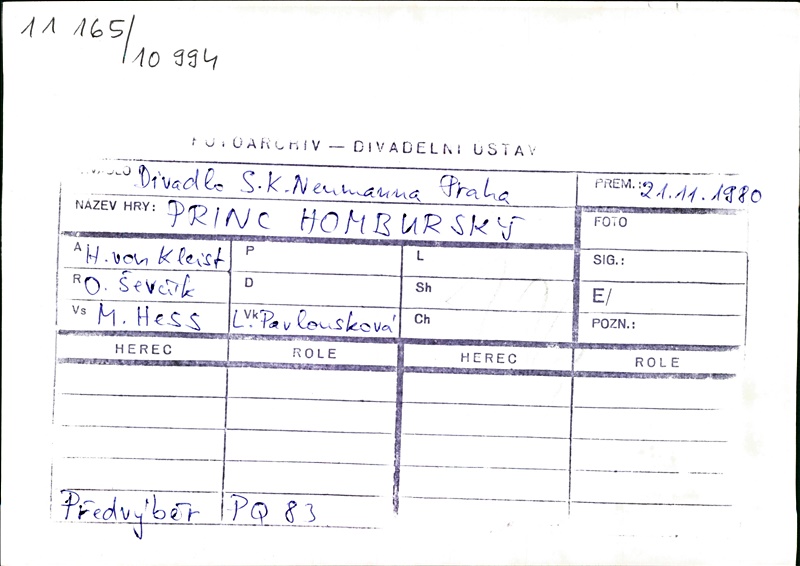 11 165/
10 994
FOTOARCHIV — DIVADELNÍ ÚSTAV
DIVADLO Divadlo S.K. Neumanna Praha PREM.: 21.11.1980
NÁZEV HRY: PRINC HOMBURSKÝ FOTO
A H. von Kleist P L SIG.:
R O. Ševčík D Sh E/
Vs M. Hess Vk L. Pavlousková Ch POZN.:
HEREC ROLE HEREC ROLE
Předvýběr PQ 83